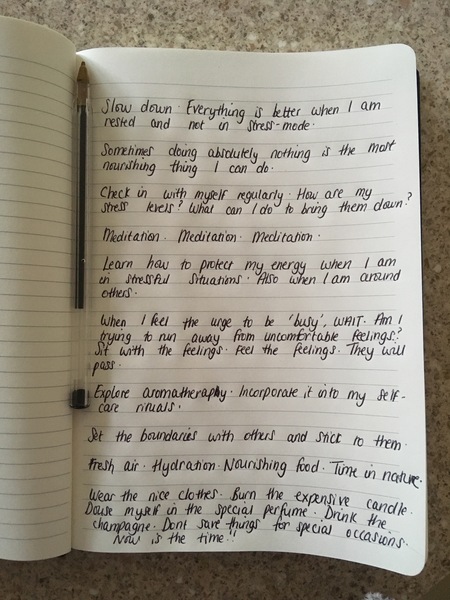 Slow down. Everything is better when I am
rested and not in stress-mode.
Sometimes doing absolutely nothing is the most
nourishing thing I can do.
Check in with myself regularly. How are my
stress levels? What can I do to bring them down?
Meditation. Meditation. Meditation.
Learn how to protect my energy when I am
in stressful situations. Also when I am around
others.
When I feel the urge to be 'busy', WAIT. Am I
trying to run away from uncomfortable feelings?
Sit with the feelings. Feel the feelings. They will
pass.
Explore aromatherapy. Incorporate it into my self-
care rituals.
Set the boundaries with others and stick to them.
Fresh air. Hydration. Nourishing food. Time in nature.
Wear the nice clothes. Burn the expensive candle.
Douse myself in the special perfume. Drink the
champagne. Dont save things for special occasions.
Now is the time!!